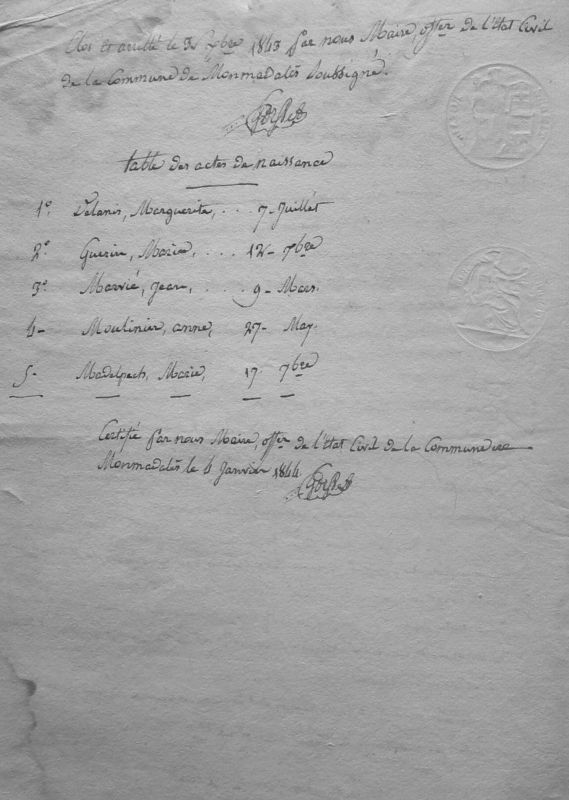 Clos et arretté le 31 Xbre 1843 par nous Maire, offer de l'état Civil
de la Commune de Monmadalès Soussigné.
table des actes de naissance
1º. Delanis, Marguerite, . . . 7 - Juillet
2º. Guerin, Marie, . . . 12 - 7bre
3º. Marrié, Jean, . . . 9 - Mars.
4 - Moulinier, anne, 27 - May.
5 - Madelpech, Marie, 17 7bre
Certifié par nous Maire, offer de l'état Civil de la Commune de
Monmadalès le 4 Janvier 1844.